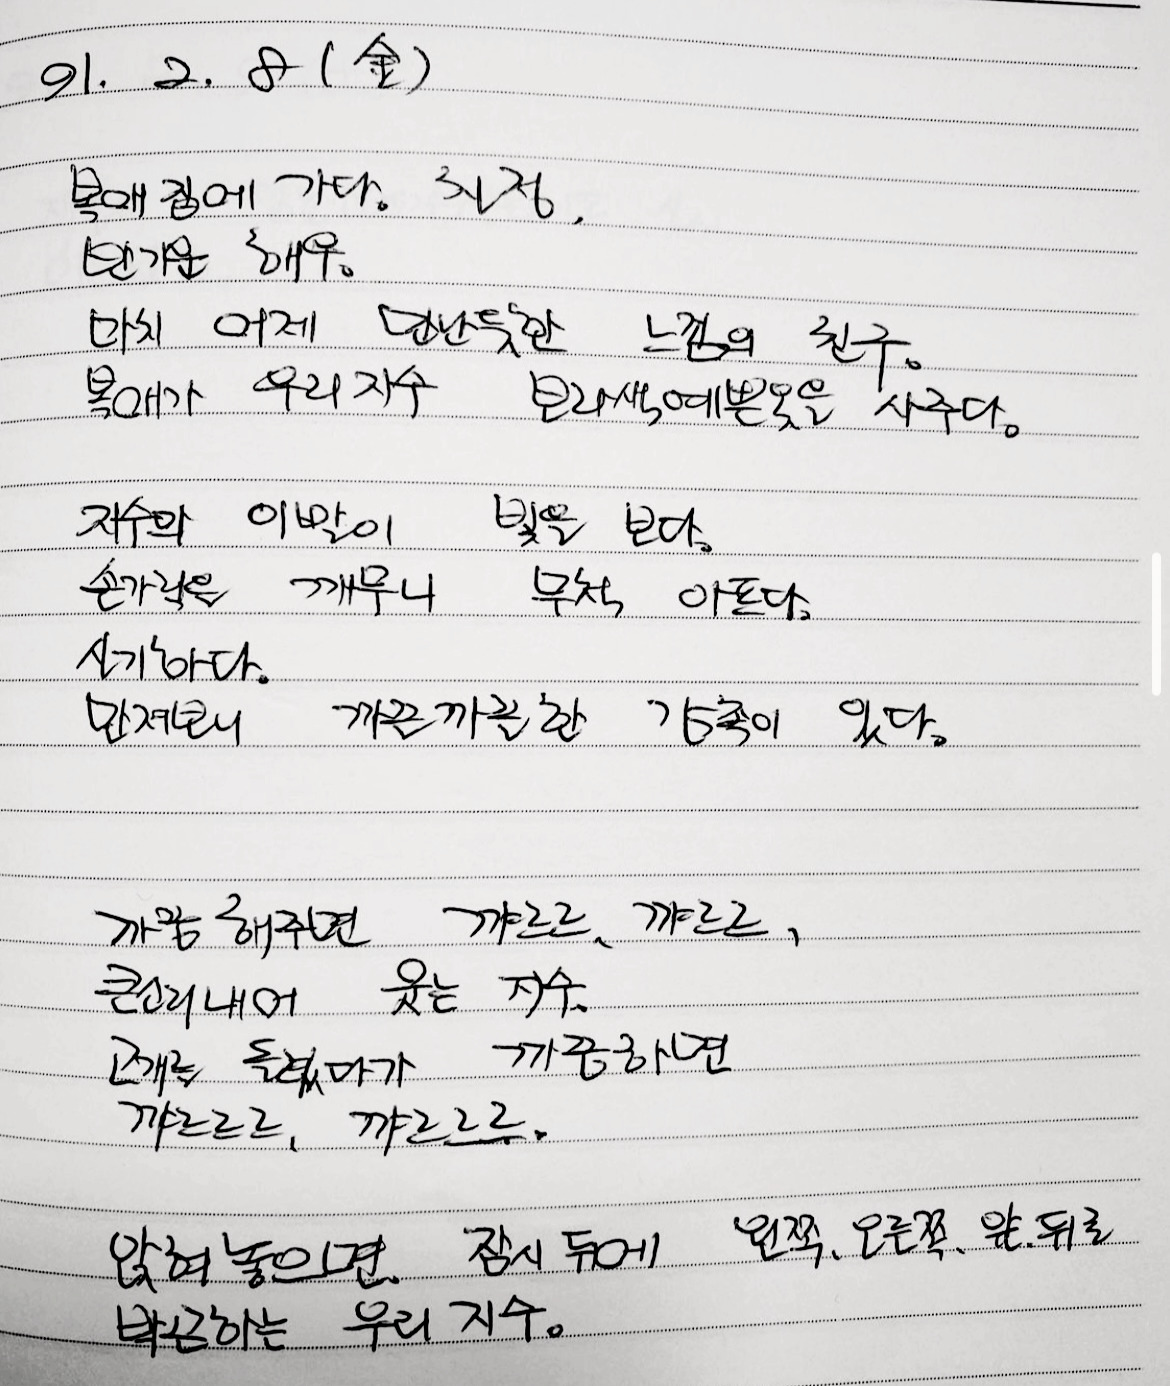 91. 2. 8 (金)
복애집에 가다. 친정,
반가운 해우.
마치 어제 만난듯한 느낌의 친구.
복애가 우리지수 보라색예쁜옷을 사주다.
지수의 이빨이 빛을 보다.
손가락을 깨무니 무척 아프다.
신기하다.
만져보니 까끈까끈한 감촉이 있다.
까꿍해주면 꺄르르, 꺄르르,
큰소리내어 웃는 지수.
고개를 돌렸다가 까꿍하면
꺄르르르, 꺄르르르.
앉혀놓으면, 잠시 뒤에 왼쪽, 오른쪽, 앞.뒤로
박근하는 우리 지수.